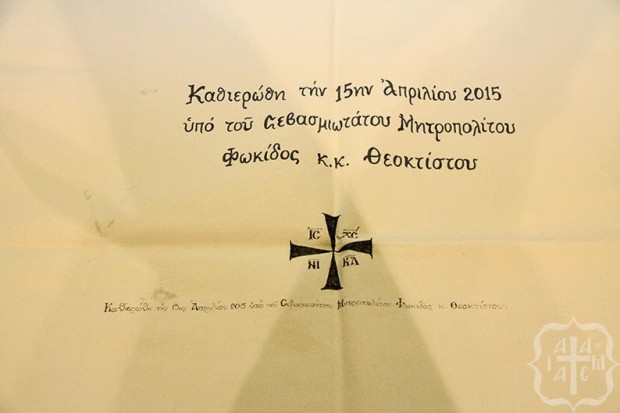 Καθιερώθη τήν 15ην Ἀπριλίου 2015
ὑπό τοῦ Σεβασμιωτάτου Μητροπολίτου
Φωκίδος κ.κ. Θεοκτίστου
ΙC ΧC
ΝΙ ΚΑ
Καθιερώθη τήν 15ην Ἀπριλίου 2015 ὑπό τοῦ Σεβασμιωτάτου Μητροπολίτου Φωκίδος κ. Θεοκτίστου